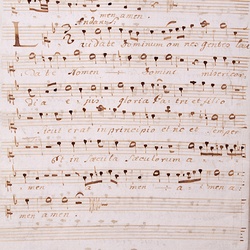 men amen.
Andante
Laudate Dominum omnes gentes lau
date Nomen Domini misericor
dia ejus gloria Patri et filio
sicut erat in principio et nc et semper
et in sæcula sæculorum a
men a men a men a
men amen.